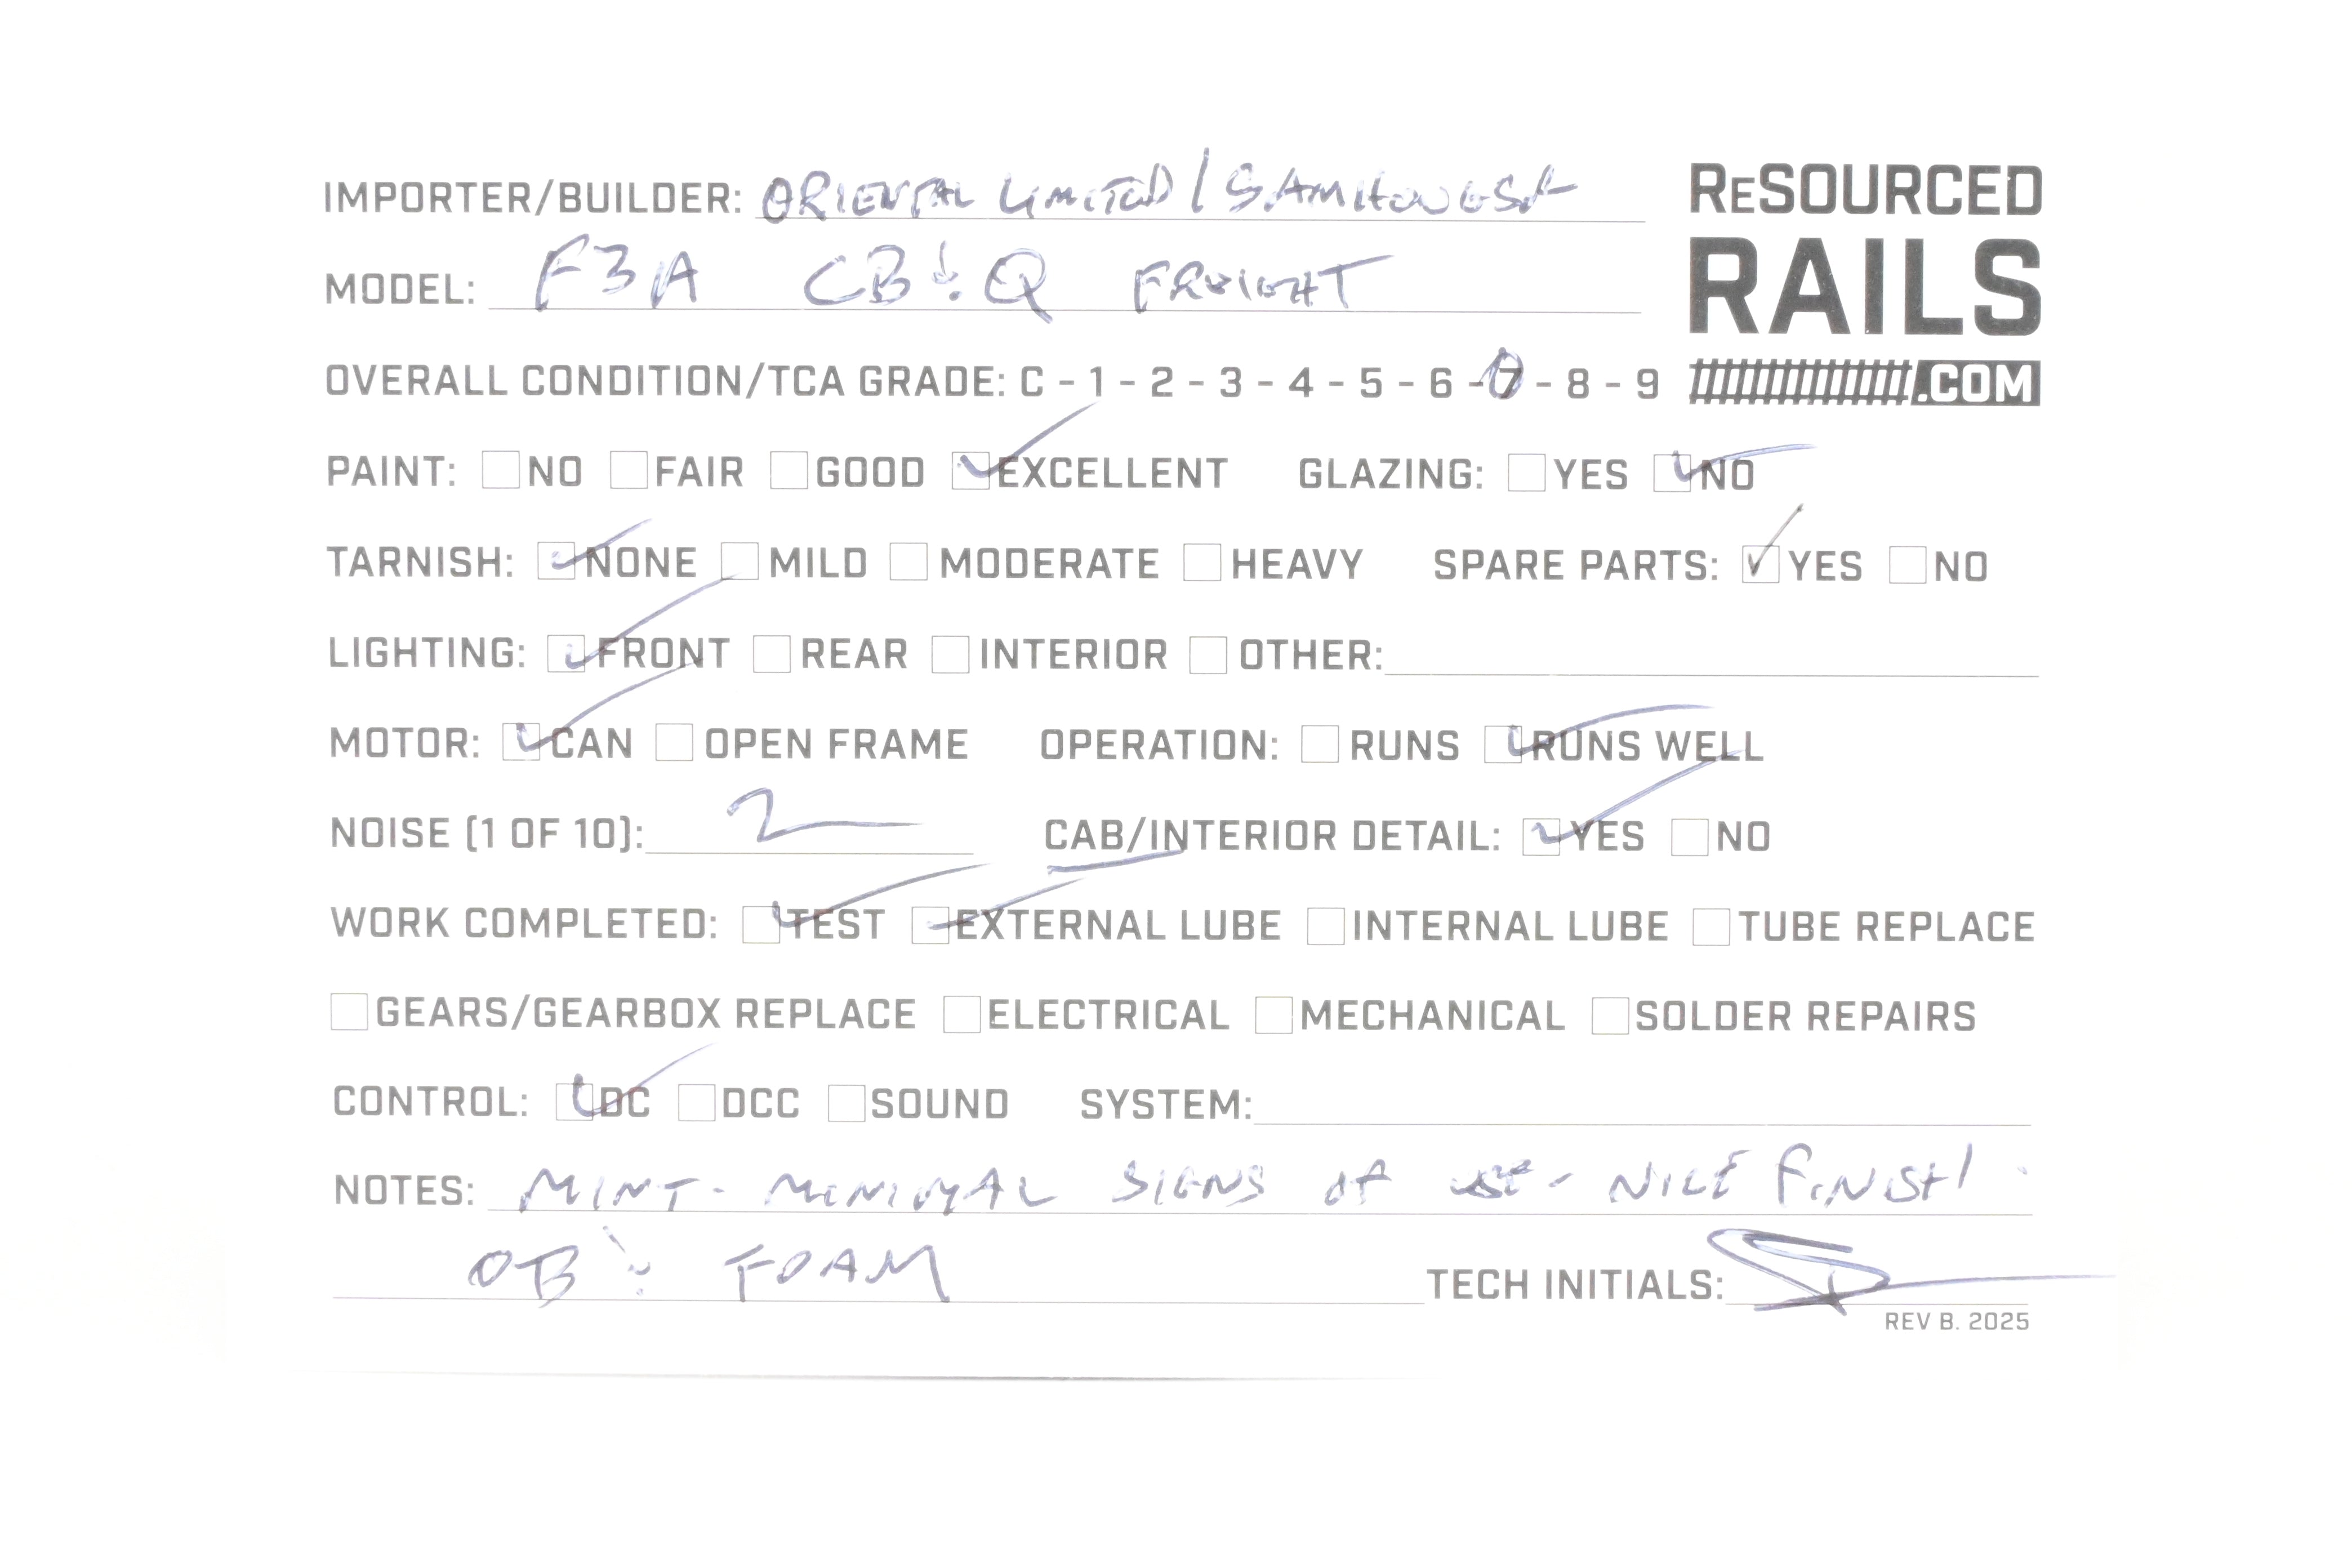 IMPORTER/BUILDER: ORIENTAL LIMITED / SAMHONGSA
RESOURCED
RAILS
.COM
MODEL: F3A CB&Q FREIGHT
OVERALL CONDITION/TCA GRADE: C - 1 - 2 - 3 - 4 - 5 - 6 - 7 - 8 - 9
PAINT: NO FAIR GOOD EXCELLENT GLAZING: YES NO
TARNISH: NONE MILD MODERATE HEAVY SPARE PARTS: YES NO
LIGHTING: FRONT REAR INTERIOR OTHER:
MOTOR: CAN OPEN FRAME OPERATION: RUNS RUNS WELL
NOISE (1 OF 10): 2 CAB/INTERIOR DETAIL: YES NO
WORK COMPLETED: TEST EXTERNAL LUBE INTERNAL LUBE TUBE REPLACE
GEARS/GEARBOX REPLACE ELECTRICAL MECHANICAL SOLDER REPAIRS
CONTROL: DC DCC SOUND SYSTEM:
NOTES: MINT - MINIMAL SIGNS OF USE - NICE FINISH!
OB & FOAM TECH INITIALS:
REV B. 2025